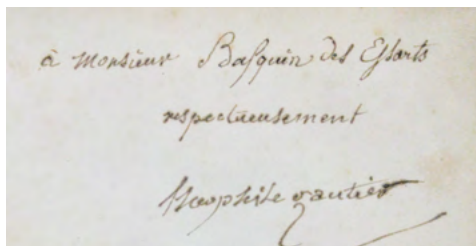 à Monsieur Basquin des Essarts
respectueusement
theophile gautier